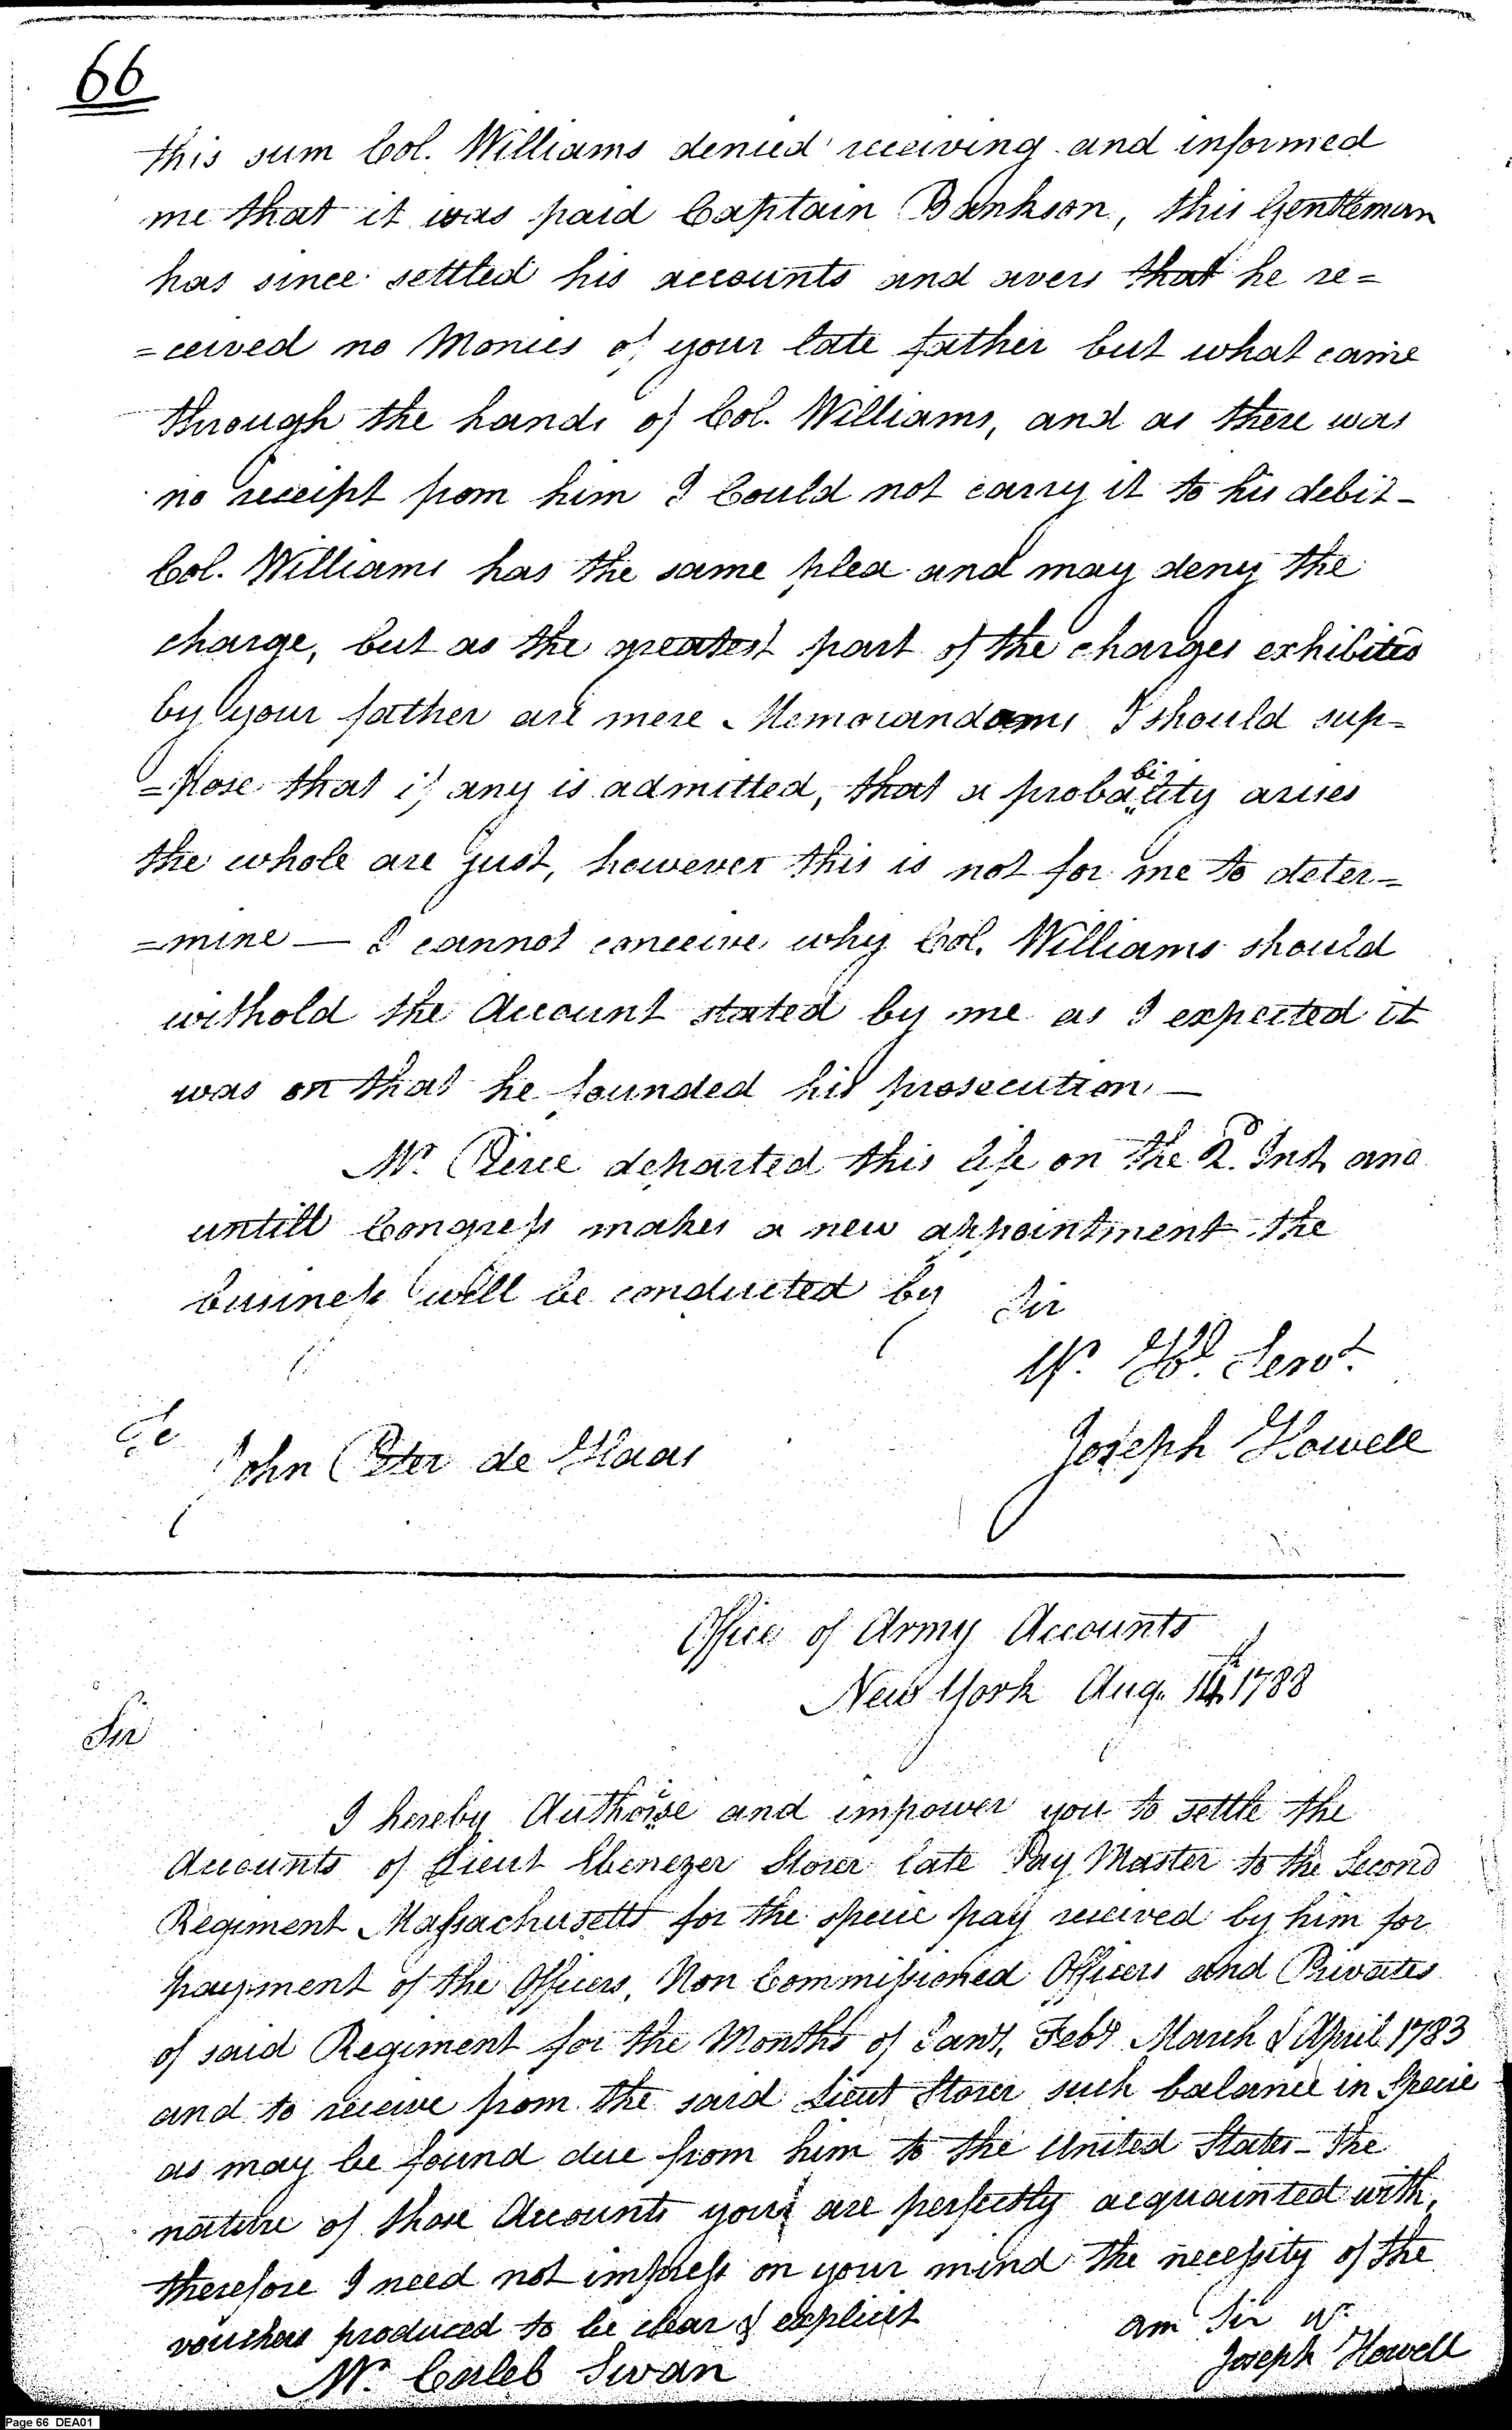 66
this sum Col. Williams denied receiving and informed
me that it was paid Captain Bankson, this Gentleman
has since settled his accounts and avers that he re=
=ceived no Monies of your late father but what came
through the hands of Col. Williams, and as there was
no receipt from him I Could not carry it to his debit-
Col. Williams has the same plea and may deny the
charge, but as the greatest part of the charges exhibited
by your father are mere Memorandams I should sup=
=pose that if any is admitted, that a probability arises
the whole are just, however this is not for me to deter=
=mine — I cannot conceive why Col. Williams should
withold the Account stated by me as I expected it
was on that he founded his prosecution —
Mr. Pierce departed this life on the 2d. Inst, and
untill Congress makes a new appointment the
business will be conducted by Sir
Yr. Hbl. Servt.
To
John Peter de Haas
Joseph Howell
Office of Army Accounts
New York Aug. 14th 1788
Sir
I hereby Authorise and impower you to settle the
Accounts of Lieut Ebenezer Storer late Pay Master to the Second
Regiment Massachusetts for the specie pay received by him for
payment of the Officers, Non Commissioned Officers and Privates
of said Regiment for the Months of Jany, Feby March & April 1783
and to receive from the said Lieut Storer such balance in Specie
as may be found due from him to the United States - The
nature of those Accounts you are perfectly acquainted with,
therefore I need not impress on your mind the necessity of the
vouchers produced to be clear & explicit
am Sir Yr
Joseph Howell
Mr. Caleb Swan
Page 66 DEA01